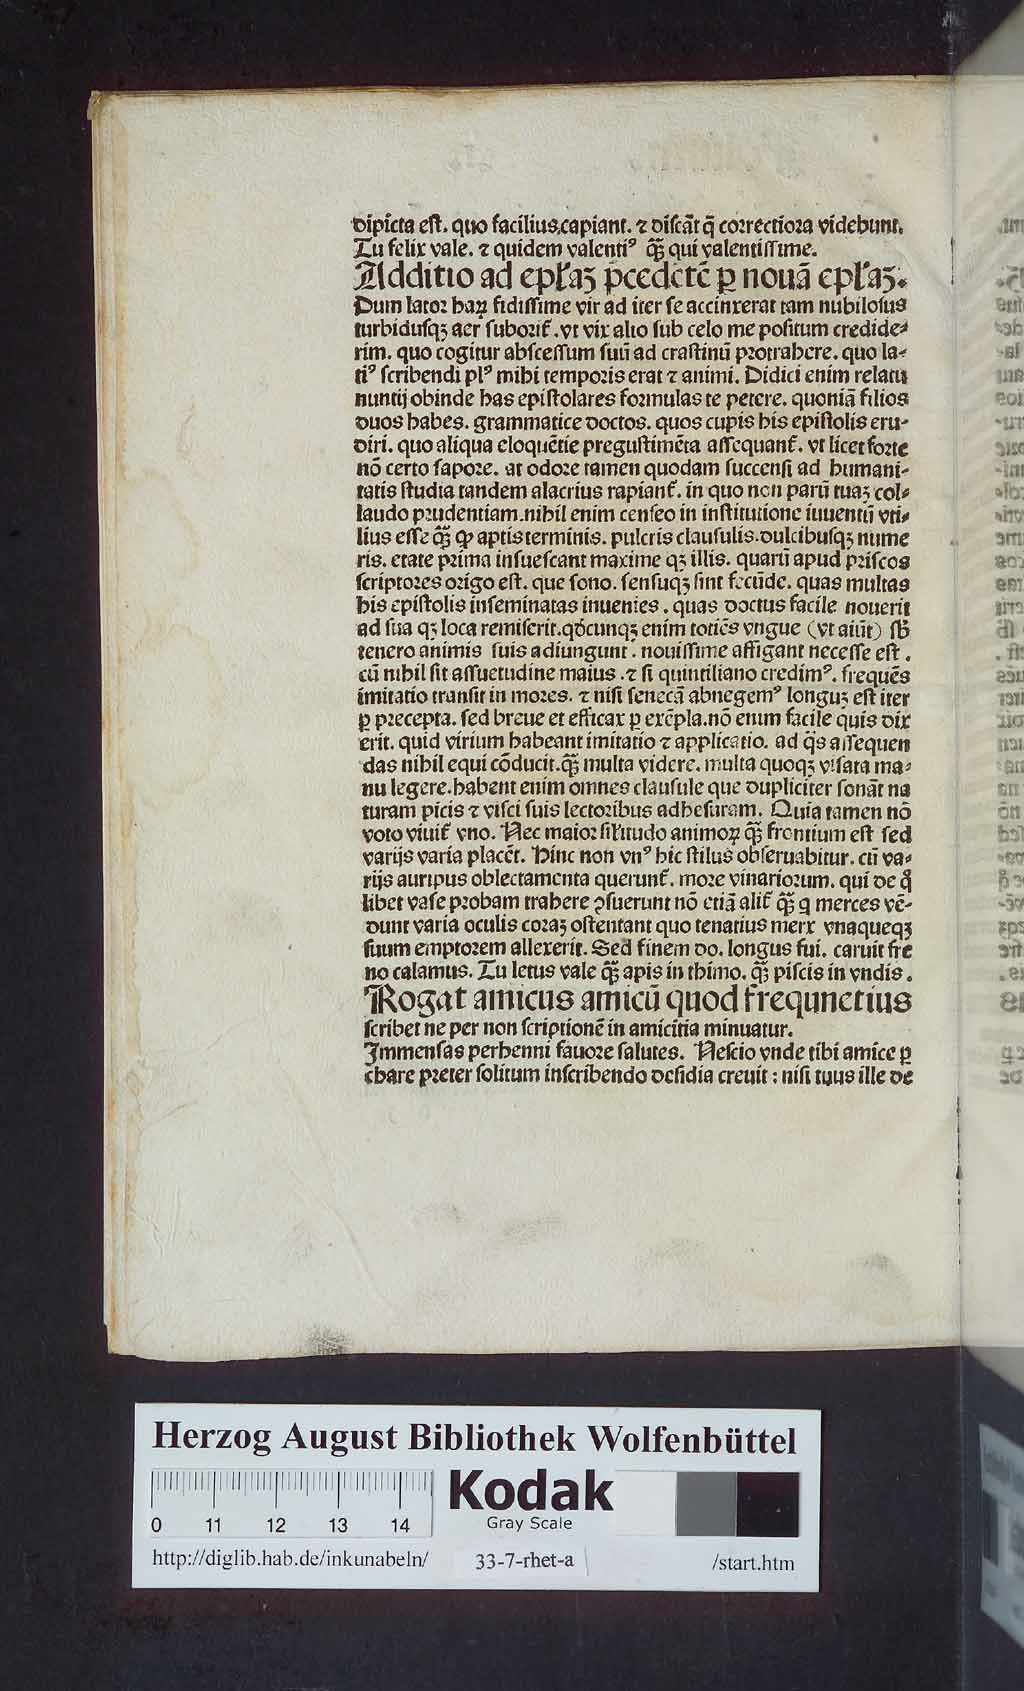 dipicta est. quo facilius capiant. ⁊ discãt q̃ correctiora videbunt.
Tu felix vale. ⁊ quidem valentiꝰ q̃ꝫ qui valentissime.
Additio ad ep̃laꝫ p̃cedẽtẽ ꝑ nouã ep̃laꝫ.
Dum lator haꝝ fidissime vir ad iter se accinxerat tam nubilosus
turbidusqꝫ aer suborit̃. vt vix alto sub celo me positum credide-
rim. quo cogitur abscessum suũ ad crastinũ protrahere. quo la-
tiꝰ scribendi plꝰ mihi temporis erat ⁊ animi. Didici enim relatu
nuntij obinde has epistolares formulas te petere. quoniã filios
duos habes. grammatice doctos. quos cupis his epistolis eru-
diri. quo aliqua eloquẽtie pregustimẽta assequant̃. vt licet forte
nõ certo sapore. at odore tamen quodam succensi ad humani-
tatis studia tandem alacrius rapiant̃. in quo non parũ tuaꝫ col-
laudo prudentiam. nihil enim censeo in institutione iuuentũ vti-
lius esse q̃ꝫ ꝙ aptis terminis. pulcris clausulis. dulcibusqꝫ nume
ris. etate prima insuescant maxime qꝫ illis. quarũ apud priscos
scriptores origo est. que sono. sensuqꝫ sint fecũde. quas multas
his epistolis inseminatas inuenies. quas doctus facile nouerit
ad sua qꝫ loca remiserit. qđcunqꝫ enim totiẽs vngue (vt aiũt) sƀ
tenero animis suis adiungunt. nouissime affigant necesse est.
cũ nihil sit assuetudine maius. ⁊ si quintiliano credimꝰ. frequẽs
imitatio transit in mores. ⁊ nisi senecã abnegemꝰ longuꝫ est iter
ꝑ precepta. sed breue et efficax ꝑ exẽpla. nõ enim facile quis dix
erit. quid virium habeant imitatio ⁊ applicatio. ad q̃s assequen
das nihil equi cõducit. q̃ꝫ multa videre. multa quoqꝫ visata ma-
nu legere. habent enim omnes clausule que dupliciter sonãt na
turam picis ⁊ visci suis lectoribus adhesuram. Quia tamen nõ
voto viuit̃ vno. Nec maior sil̃itudo animoꝝ q̃ꝫ frontium est sed
varijs varia placẽt. Hinc non vnꝰ hic stilus obseruabitur. cũ va-
rijs auripus oblectamenta querunt̃. more vinariorum. qui de q̊
libet vase probam trahere ꝯsuerunt nõ etiã alit̃ q̃ꝫ q merces vẽ-
dunt varia oculis coraꝫ ostentant quo tenatius merx vnaqueqꝫ
suum emptorem allexerit. Sed finem do. longus fui. caruit fre
no calamus. Tu letus vale q̃ꝫ apis in thimo. q̃ꝫ piscis in vndis.
Rogat amicus amicũ quod frequnetius
scribet ne per non scriptionẽ in amicitia minuatur.
Immensas perhenni fauore salutes. Nescio vnde tibi amice ꝑ
chare preter solitum inscribendo desidia creuit : nisi tuus ille de
Herzog August Bibliothek Wolfenbüttel
Kodak
Gray Scale
0 11 12 13 14
http://diglib.hab.de/inkunabeln/ 33-7-rhet-a /start.htm